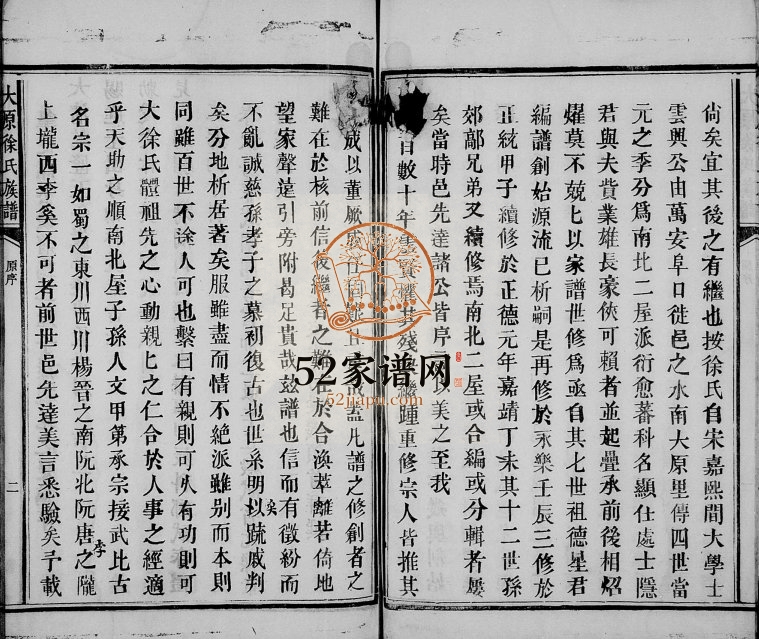 尙矣宜其後之有繼也按徐氏自宋嘉熙間大學士
雲興公由萬安阜口徙邑之水南大原里傳四世當
元之季分爲南北二屋派衍愈蕃科名顯仕處士隱
君與夫貲業雄長豪俠可賴者並起疊承前後相炤
燿莫不兢兢以家譜世修爲亟自其七世祖德星君
編譜創始源流已析嗣是再修於永樂壬辰三修於
正統甲子續修於正德元年嘉靖丁未其十二世孫
郊鄗兄弟又續修焉南北二屋或合編或分輯者屢
矣當時邑先達諸公皆序美之至我
百數十年賢其殘繼踵重修宗人皆推其
成以董厥成譜之修創者之
難在於核前信後繼者之難在於合渙萃離若倚地
望家聲遠引旁附曷足貴哉玆譜也信而有徵紛而
不亂誠慈孫孝子之慕初復古也世系明以疏戚判
矣
矣分地析居著矣服雖盡而情不絕派雖别而本則
同雖百世不途人可也繫曰有親則可久有功則可
大徐氏體祖先之心動親親之仁合於人事之經適
乎天助之順南北屋子孫人文甲第承宗接武比古
名宗一如蜀之東川西川楊晉之南阮北阮唐之隴
李
上壠西李奚不可者前世邑先達美言悉驗矣予載
大原徐氏族譜
原序
二
52家谱网
52jiapu.com